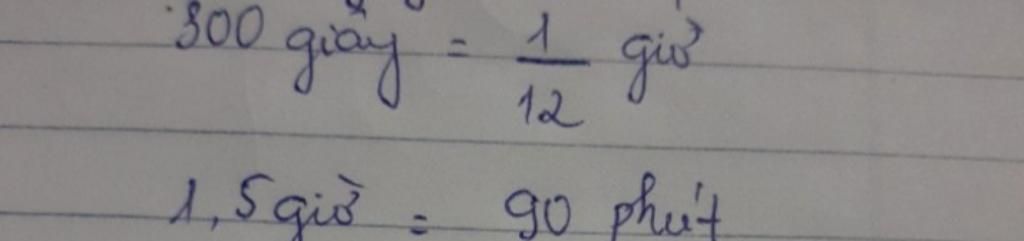 300 giây = 1/12 giờ
1,5 giờ = 90 phút